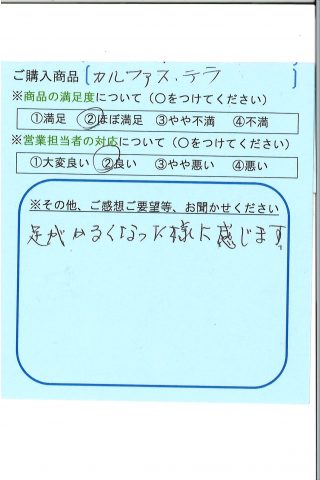 ご購入商品〔カルファス.テラ〕
※商品の満足度について（○をつけてください）
①満足 ②ほぼ満足 ③やや不満 ④不満
※営業担当者の対応について（○をつけてください）
①大変良い ②良い ③やや悪い ④悪い
※その他、ご感想ご要望等、お聞かせください
足がかるくなった様に感じます